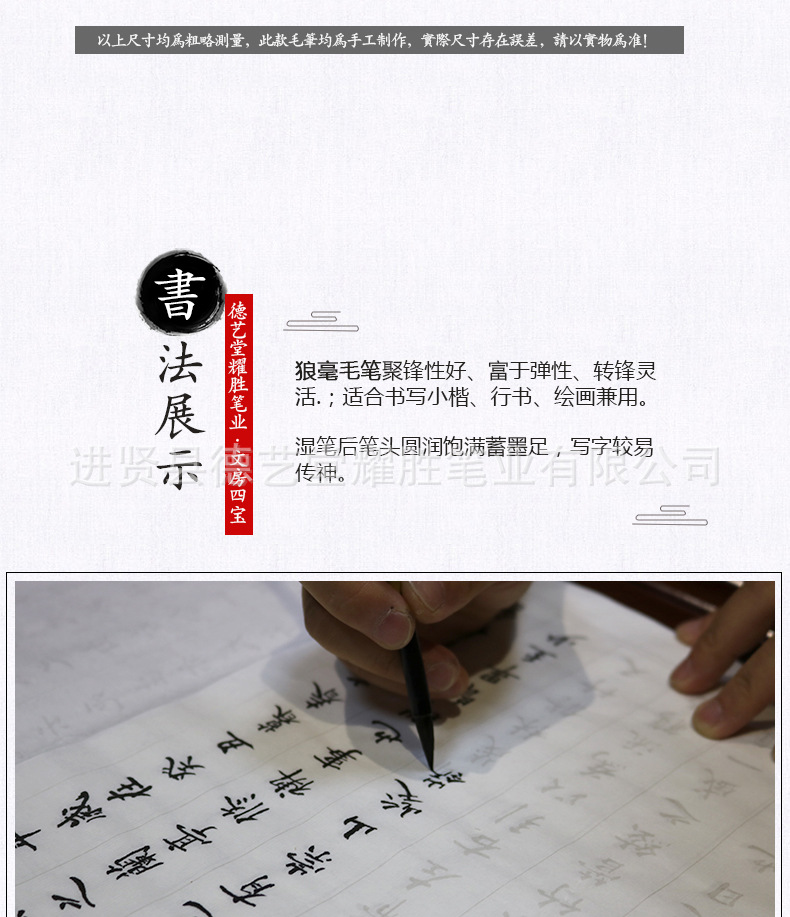 以上尺寸均爲粗略測量，此款毛筆均爲手工制作，實際尺寸存在誤差，請以實物爲准！
書法展示
德艺堂耀胜笔业·文房四宝
狼毫毛笔聚锋性好、富于弹性、转锋灵
活.；适合书写小楷、行书、绘画兼用。
湿笔后笔头圆润饱满蓄墨足，写字较易
传神。
进贤县德艺堂耀胜笔业有限公司
在癸丑暮春
蘭亭脩禊事也
有崇山峻